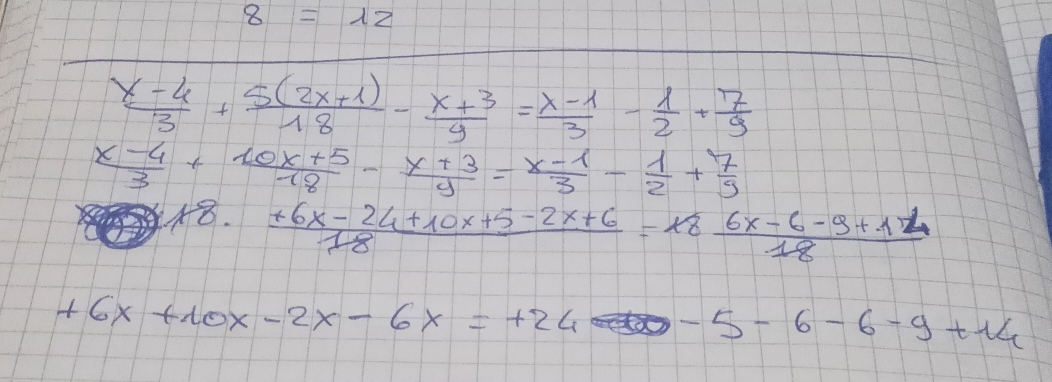 8 = 12
x-4/3 + 5(2x+1)/18 - x+3/9 = x-1/3 - 1/2 + 7/9
x-4/3 + 10x+5/18 - x+3/9 = x-1/3 - 1/2 + 7/9
18. +6x-24+10x+5-2x+6/18 = 18 6x-6-9+14/18
+6x +10x -2x - 6x = +24 -5-6-6-9+14